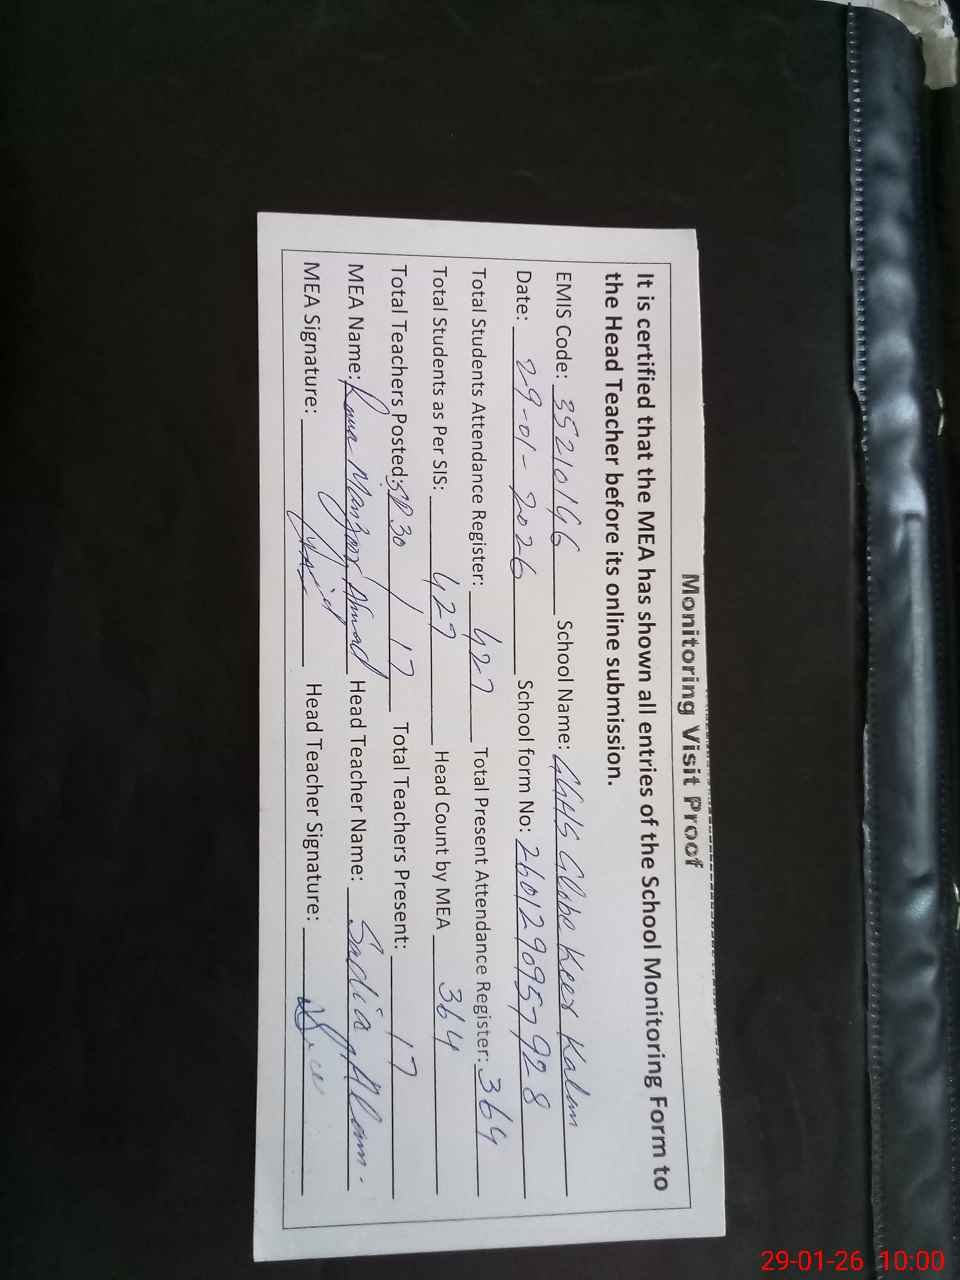 Monitoring Visit Proof
It is certified that the MEA has shown all entries of the School Monitoring Form to
the Head Teacher before its online submission.
EMIS Code: 35210146 School Name: GGHS Globe Keer Kalan
Date: 29-01-2026 School form No: 2601290957928
Total Students Attendance Register: 427 Total Present Attendance Register: 364
Total Students as Per SIS: 427 Head Count by MEA 364
Total Teachers Posted: 30 / 17 Total Teachers Present: 17
MEA Name: Rana Manzoor Ahmad Head Teacher Name: Sadia Aslam.
MEA Signature: Head Teacher Signature:
29-01-26 10:00